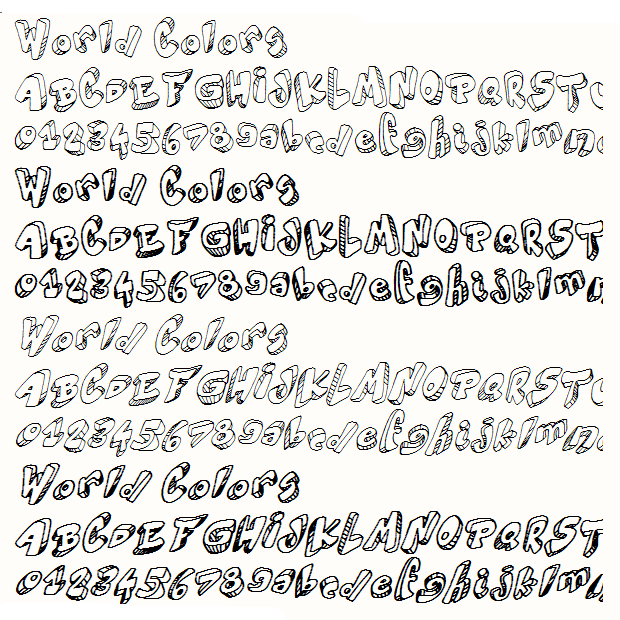 World Colors
ABCDEFGHiJKLMNOPQRSTU
0123456789abcdefghijklmn
World Colors
ABCDEFGHiJKLMNOPQRST
0123456789abcdefghijklm
World Colors
ABCDEFGHiJKLMNOPQRSTU
0123456789abcdefghijklmn
World Colors
ABCDEFGHiJKLMNOPQRST
0123456789abcdefghijklm